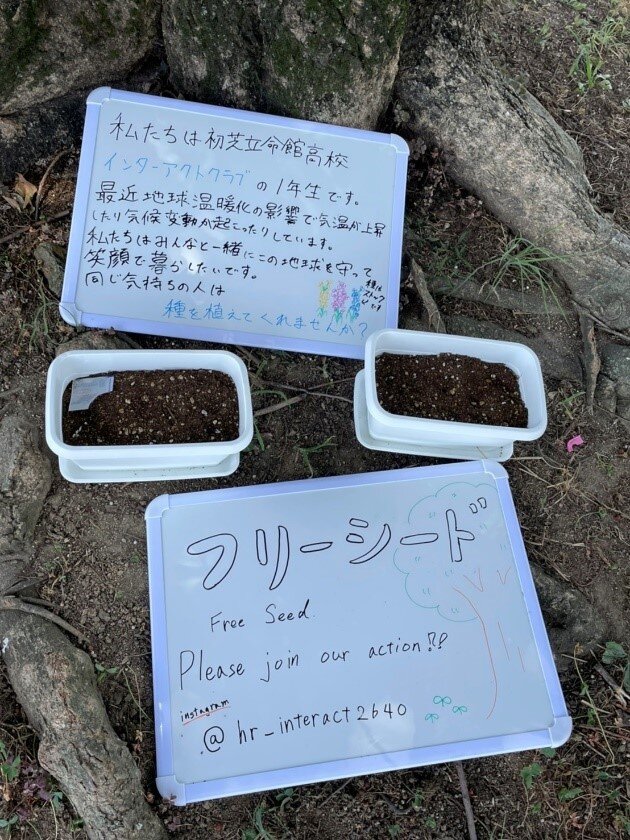 私たちは初芝立命館高校
インターアクトクラブの1年生です。
最近地球温暖化の影響で気温が上昇
したり気候変動が起こったりしています。
私たちはみんなと一緒にこの地球を守って
笑顔で暮らしたいです。
同じ気持ちの人は
種を植えてくれませんか?
種は
ストック
です
フリーシード
Free Seed.
Please join our action!?
instagram
@hr_interact2640